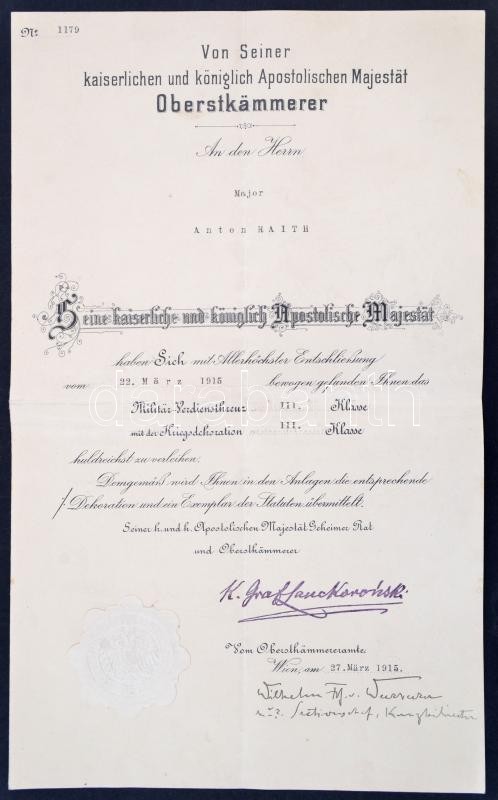 No 1179
Von Seiner
kaiserlichen und königlich Apostolischen Majestät
Oberstkämmerer
An den Herrn
Major
Anton RAITH
Seine kaiserliche und königlich Apostolische Majestät
haben Sich mit Allerhöchster Entschliessung
vom 22. März 1915 bewogen gefunden Ihnen das
Militär-Verdienstkreuz III. Klasse
mit der Kriegsdekoration III. Klasse
huldreichst zu verleihen.
Demgemäss wird Ihnen in den Anlagen die entsprechende
Dekoration und ein Exemplar der Statuten übermittelt.
Seiner k. und k. Apostolischen Majestät Geheimer Rat
und Oberstkämmerer
K. Graf Lanckoroński
Vom Oberstkämmereramte.
Wien, am 27. März 1915.
Wilhelm Fh. v.
k. u. k. Sectionschef, Kanzleidirektor
darabanth